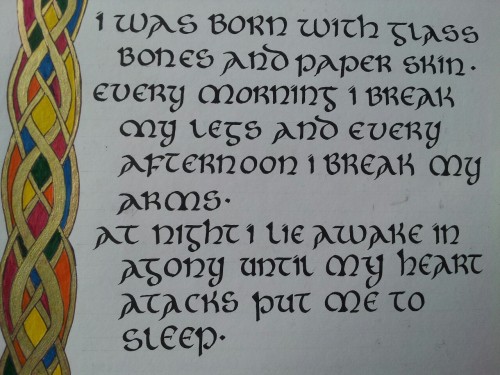 I WAS BORN WITH GLASS
BONES AND PAPER SKIN.
EVERY MORNING I BREAK
MY LEGS AND EVERY
AFTERNOON I BREAK MY
ARMS.
AT NIGHT I LIE AWAKE IN
AGONY UNTIL MY HEART
ATACKS PUT ME TO
SLEEP.